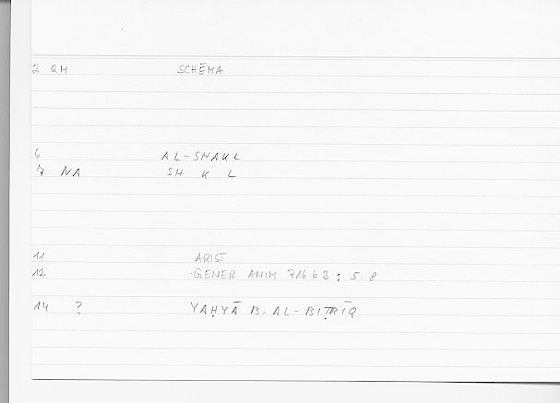 2 QM SCHĒMA
6 AL-SHAKL
7 NA SH K L
11 ARIST
12 GENER ANIM 716 b 3 : 5.8
14 ? YAḤYĀ B. AL-BIṬRĪQ